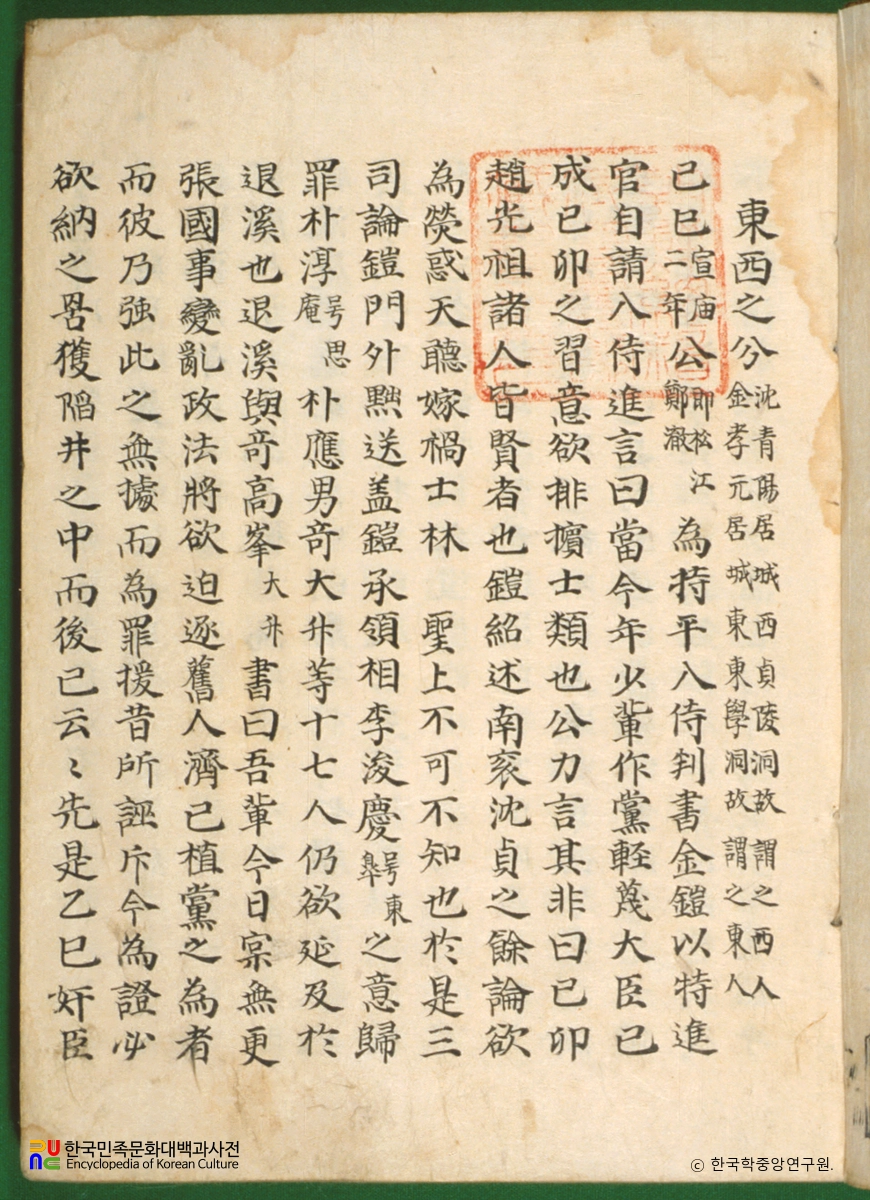 東西之分 沈青陽居城西貞陵洞故謂之西人 金孝元居城東東學洞故謂之東人
己巳 宣庙二年 公 即松江鄭澈 為持平入侍判書金鎧以特進
官自請入侍進言曰當今年少軰作黨軽蔑大臣已
成己卯之習意欲排擯士類也公力言其非曰己卯
趙光祖諸人皆賢者也鎧紹述南衮沈貞之餘論欲
為熒惑天聴嫁禍士林 聖上不可不知也於是三
司論鎧門外黜送盖鎧承領相李浚慶 号東皐 之意歸
罪朴淳 号思庵 朴應男竒大升等十七人仍欲延及於
退溪也退溪與竒高峯 大升 書曰吾軰今日寀無更
張國事變亂政法將欲迫逐舊人濟己植黨之為者
而彼乃強此之無據而為罪援昔所誣斥今為證必
欲納之罟獲陷井之中而後已云〻先是乙巳奸臣
한국민족문화대백과사전
Encyclopedia of Korean Culture
© 한국학중앙연구원.